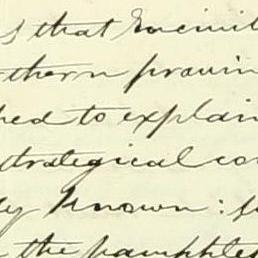 s that
thern provin
hed to explain
strategical co
ly known: f
the pamphlet